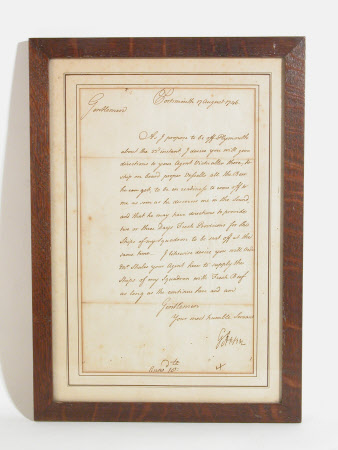 Gentlemen
Portsmouth 17 August 1746
As I propose to be off Plymouth
about the 22d instant, I desire you will give
directions to your Agent Victualler there, to
ship on board proper Vessells all the Beer
he can get, to be in readiness to come off to
me as soon as he discovers me in the Sound
and that he may have directions to provide
two or three Days Fresh Provisions for the
Ships of my Squadron to be sent off at the
same time. I likewise desire you will
Mr your Agent here to supply the
Ships of my Squadron with Fresh Beef
as long as they continue here and am
Gentlemen
Your most humble Servant
G Anson